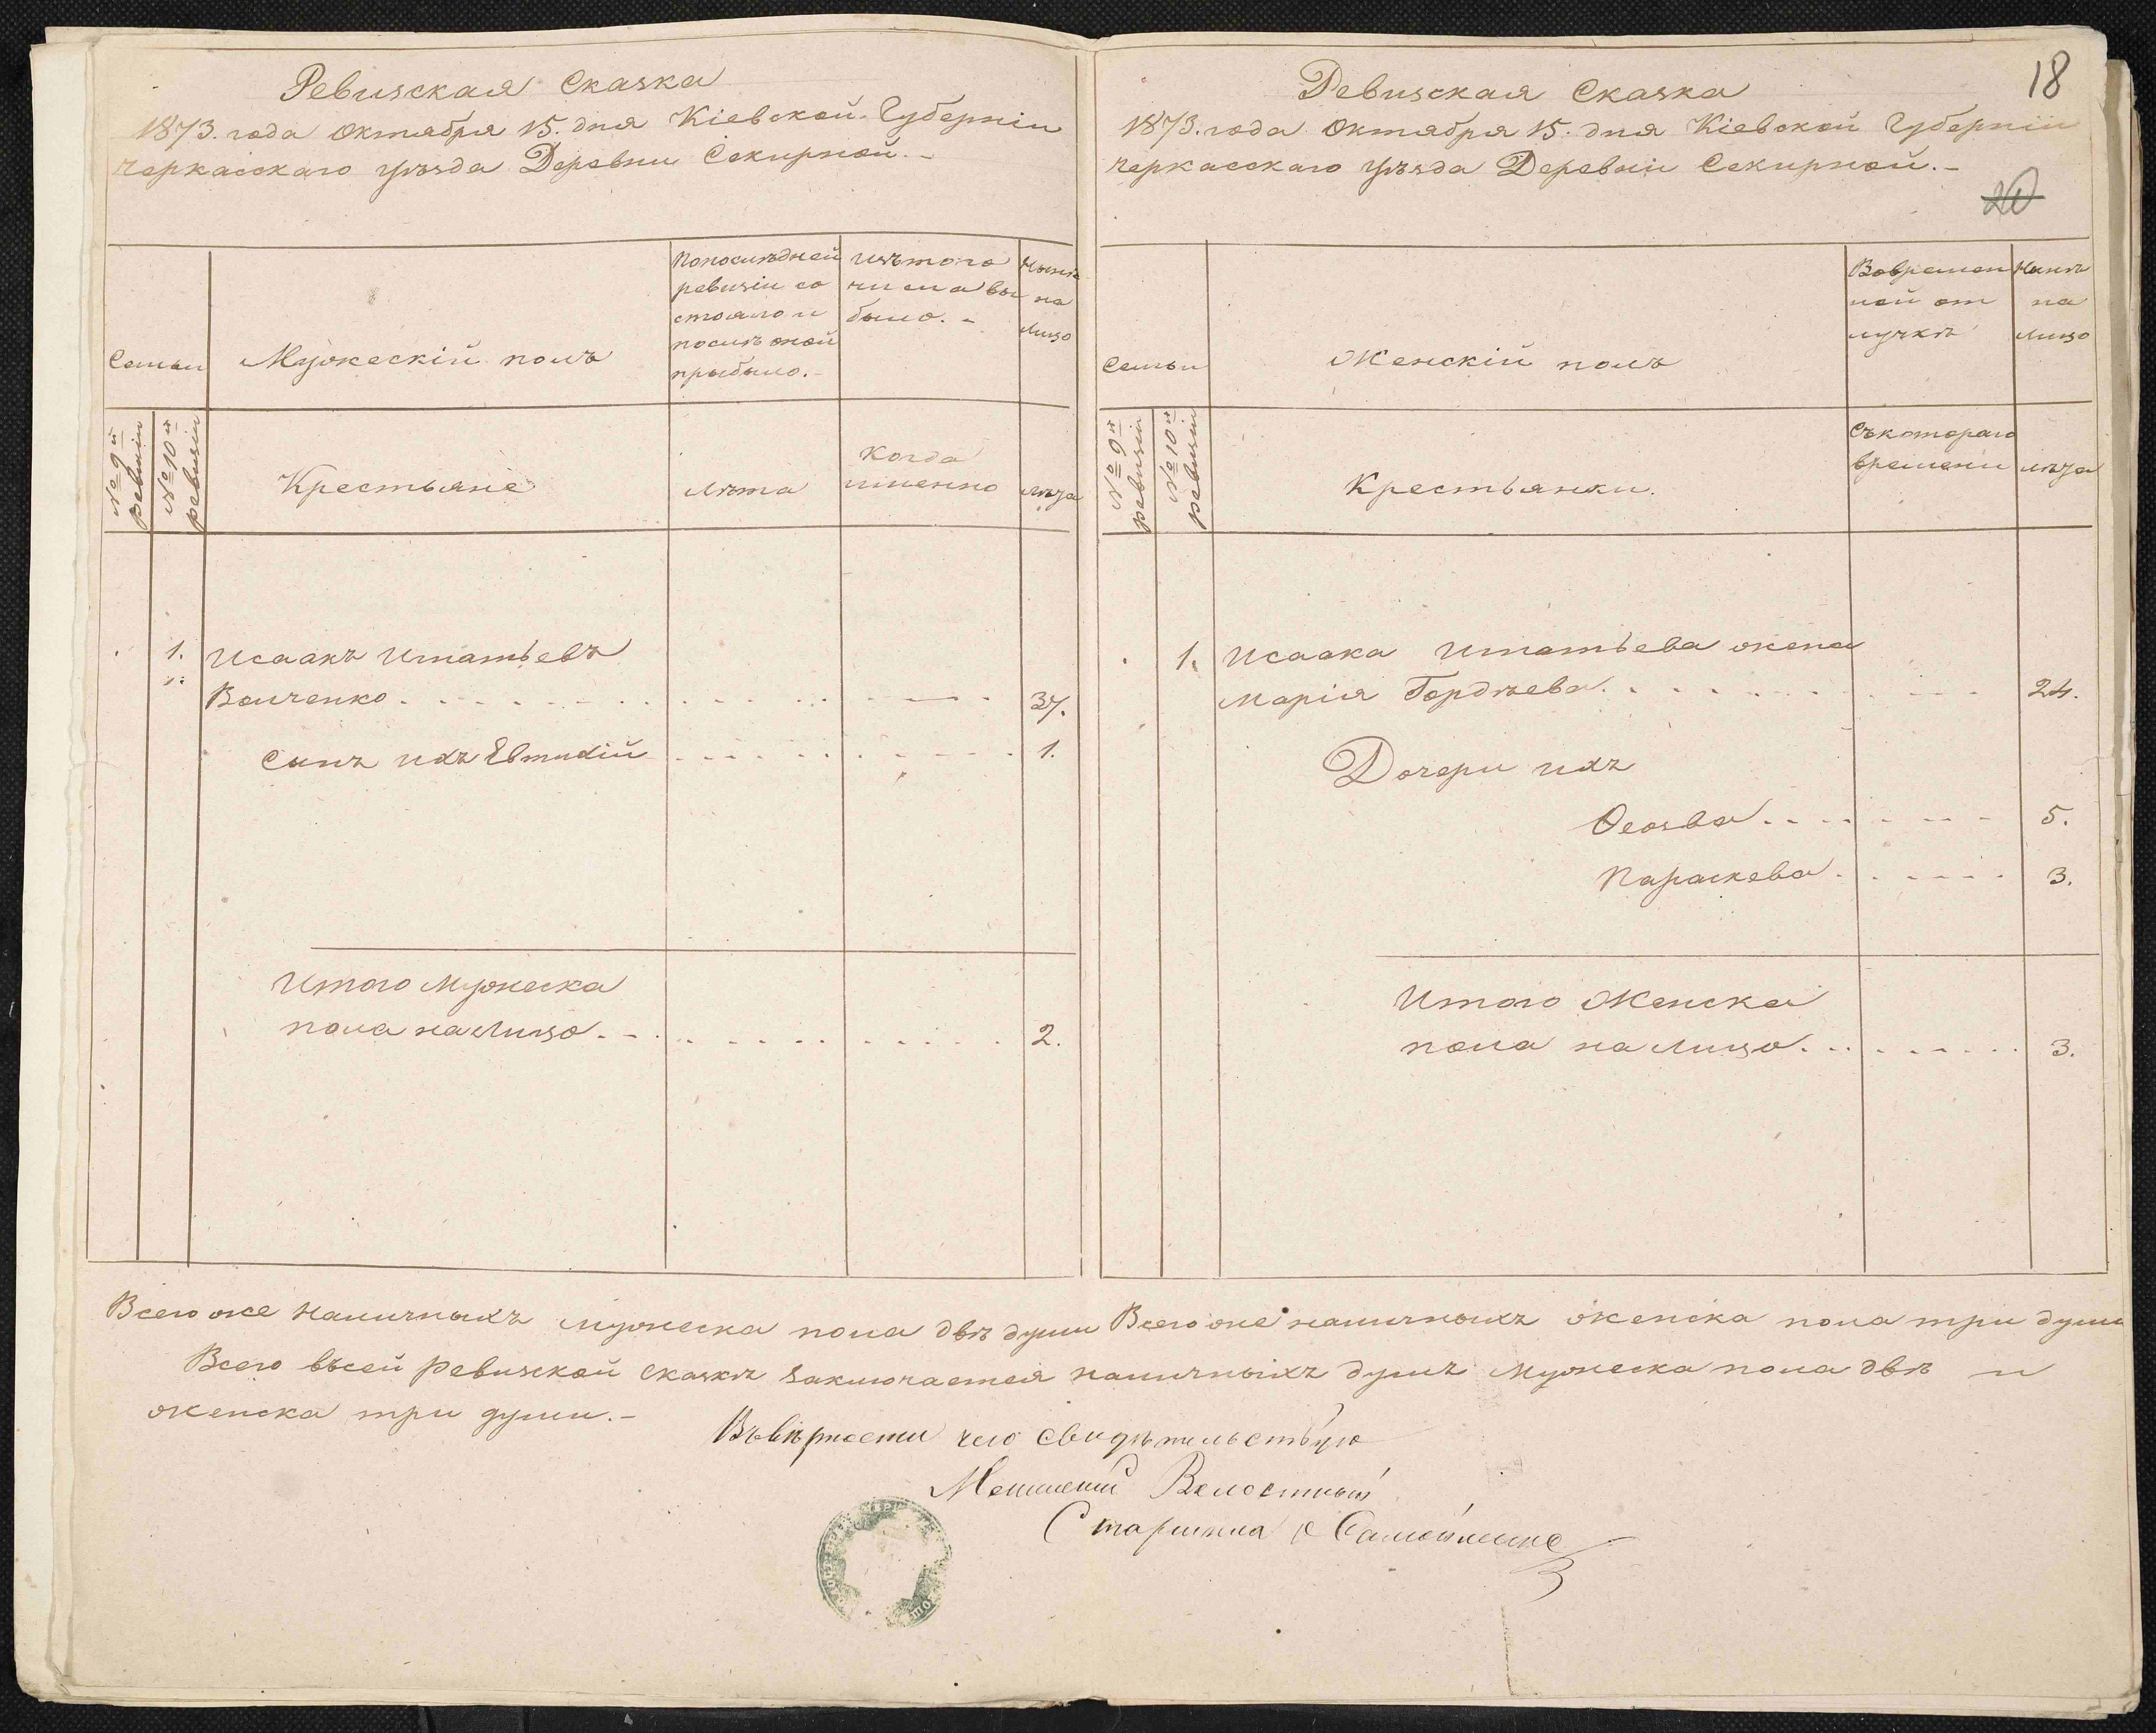 Ревизская Сказка
1873. года Октября 15. дня Кіевской Губерніи
Черкасскаго уѣзда Деревни Секирной. -
Семьи
Мужескій полъ
Попослѣдней
ревизіи со
стояло и
послѣ оной
прыбыло. -
Изътого
числа вы
было. -
Нынѣ
на
лицо
№ 9й
ревизіи
№ 10й
ревизіи
Крестьяне
лѣта
Когда
именно
лѣта
1. Исаакъ Игнатьевъ
Волченко . . . . . . 37.
Сынъ ихъ Евтихій . . . . . . 1.
Итого Мужеска
пола на лицо . . . . . . 2.
Всего же наличныхъ мужеска пола двѣ души
18
Ревизская Сказка
1873. года Октября 15. дня Кіевской Губерніи
Черкасскаго уѣзда Деревни Секирной. -
20
Семьи
Женскій полъ
Вовремен
ной от
лучкѣ
Нынѣ
на
лицо
№ 9й
ревизіи
№ 10й
ревизіи
Крестьянки.
Съкотораго
времени
лѣта
1. Исаака Игнатьева жена
Марія Гордѣева . . . . . . 24.
Дочери ихъ
Ѳеозва . . . . . . 5.
Параскева . . . . . . 3.
Итого Женска
пола на лицо . . . . . . 3.
Всего же наличныхъ женска пола три души
Всего въсей ревизской сказкѣ заключается наличныхъ душъ мужеска пола двѣ и
женска три души. -
Въвѣрности чего свидѣтельствую
Волостный
Старшина